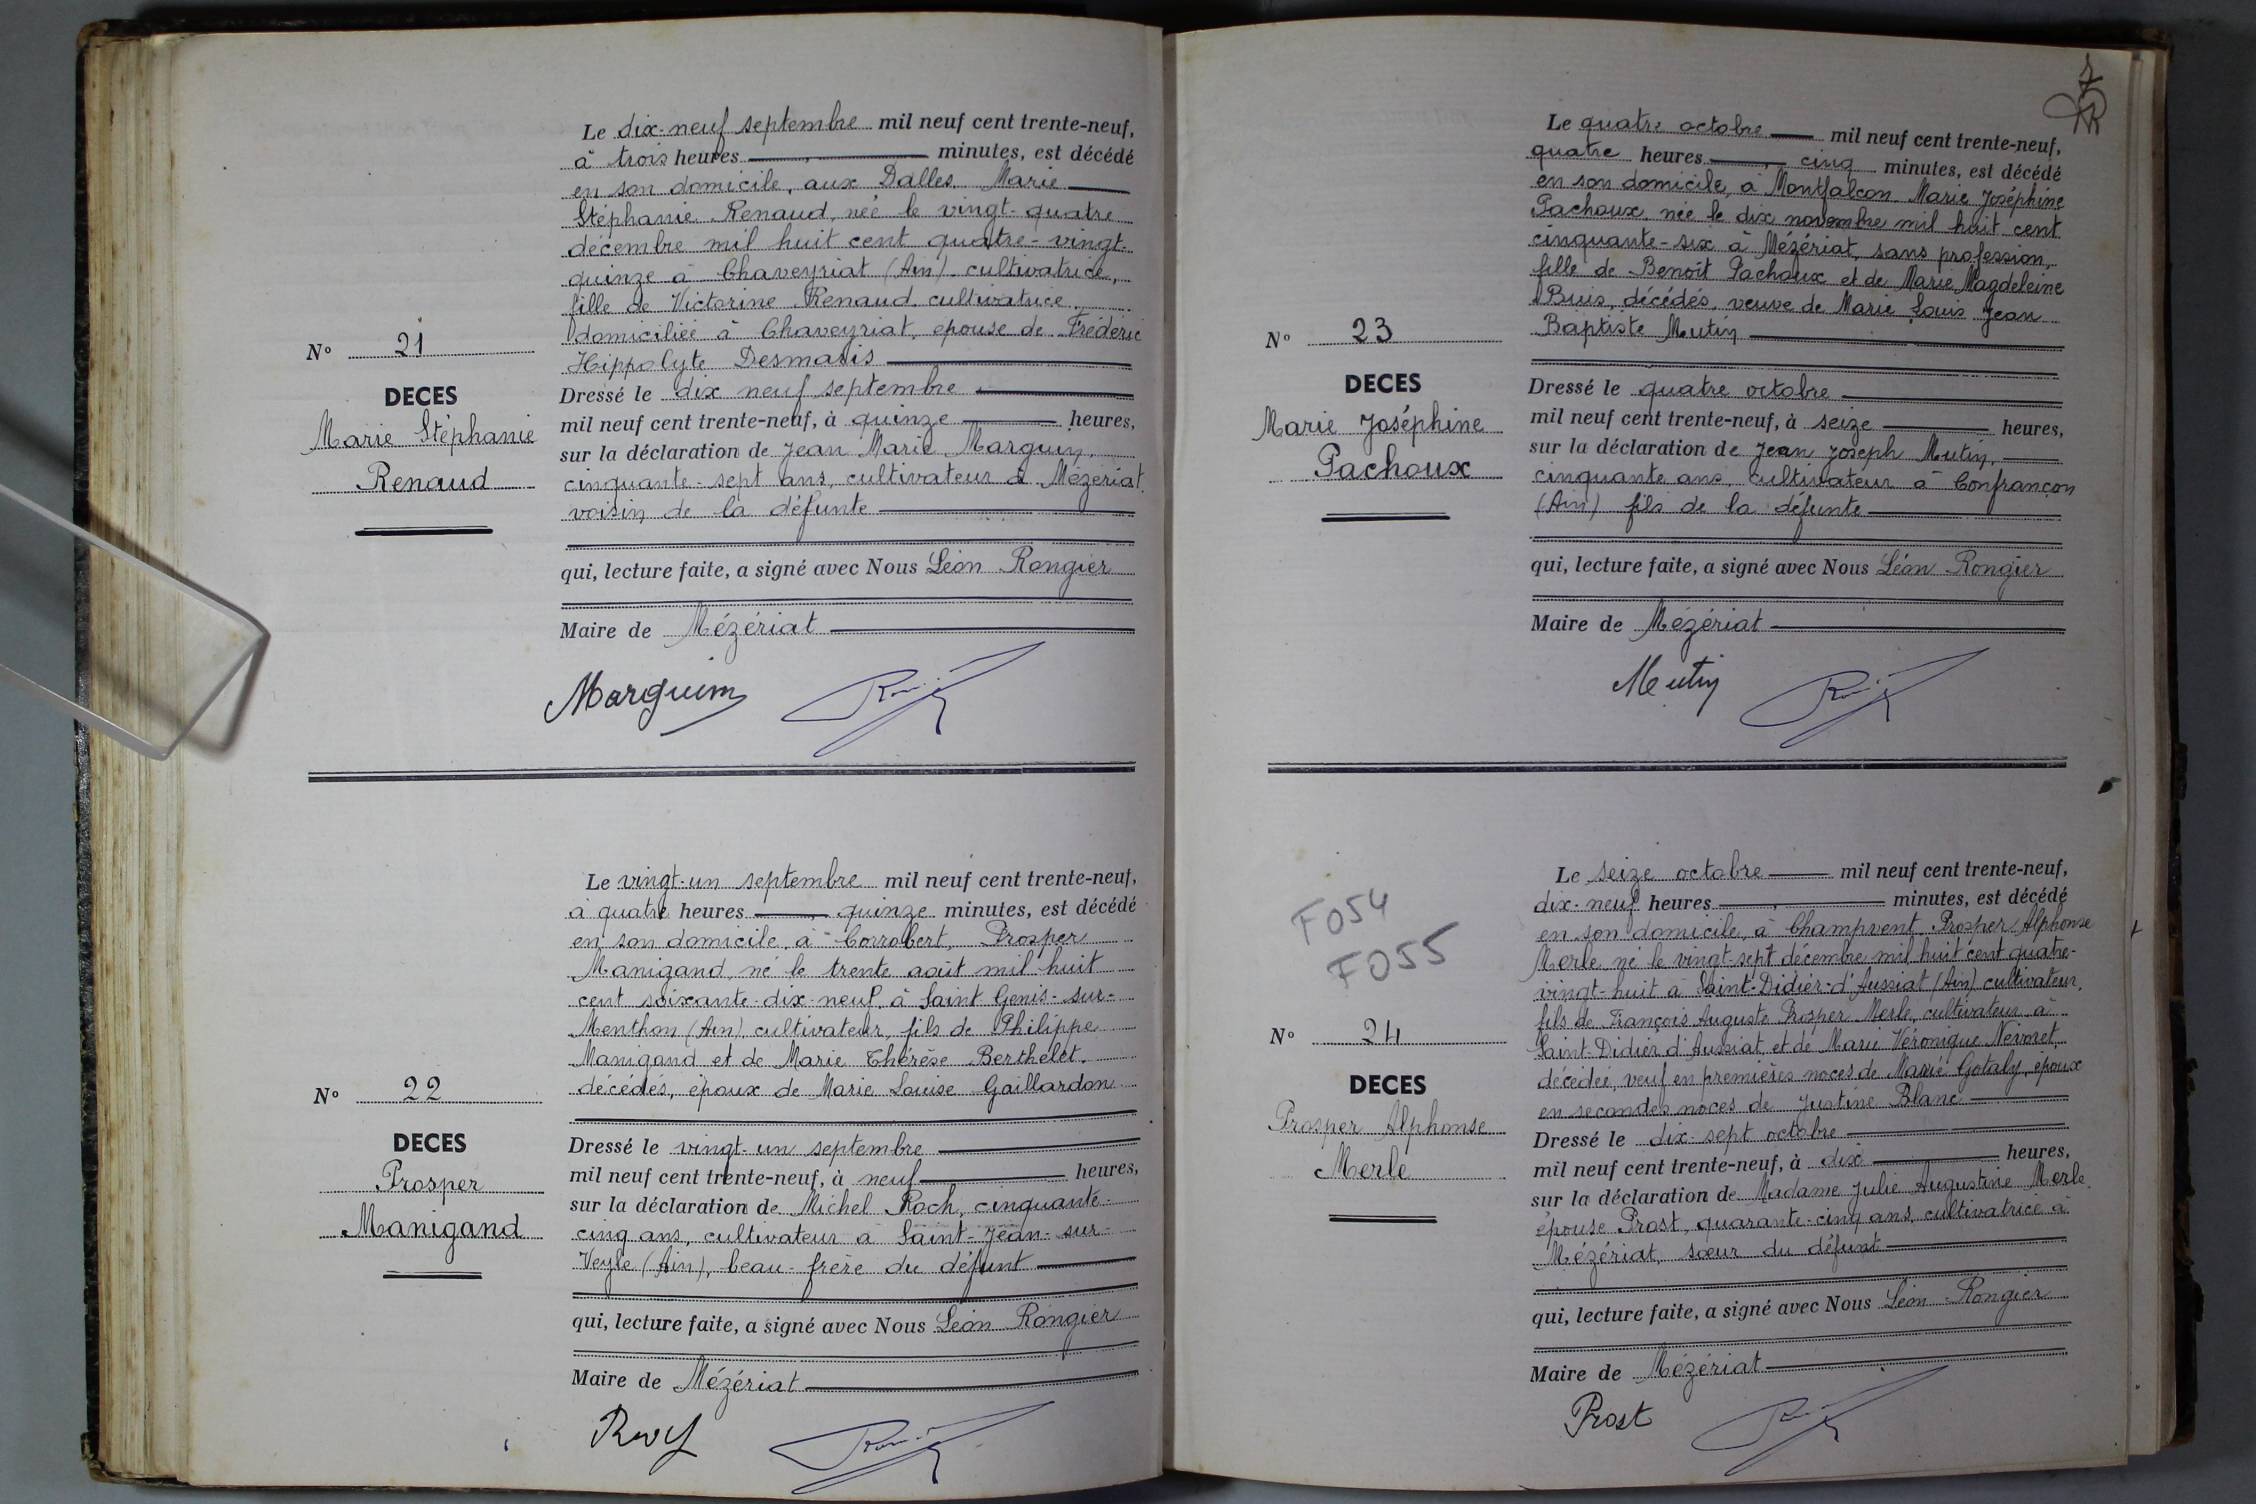 Le dix-neuf septembre mil neuf cent trente-neuf,
à trois heures minutes, est décédé
en son domicile, aux Dalles Marie
Stéphanie Renaud, née le vingt-quatre
décembre mil huit cent quatre-vingt-
quinze à Chaveyriat (Ain) cultivatrice,
fille de Victorine Renaud cultivatrice
domiciliée à Chaveyriat, épouse de Frédéric
Hippolyte Desmaris
N° 21
DECES
Marie Stéphanie
Renaud
Dressé le dix neuf septembre
mil neuf cent trente-neuf, à quinze heures,
sur la déclaration de Jean Marie Marguin,
cinquante-sept ans, cultivateur à Mézériat
voisin de la défunte
qui, lecture faite, a signé avec Nous Léon Rongier
Maire de Mézériat
Marguin
Le vingt-un septembre mil neuf cent trente-neuf,
à quatre heures quinze minutes, est décédé
en son domicile, à Corrobert, Prosper
Manigand, né le trente août mil huit
cent soixante-dix-neuf à Saint Genis-sur-
Menthon (Ain) cultivateur, fils de Philippe
Manigand et de Marie Thérèse Berthelet,
décédés, époux de Marie Louise Gaillardon
N° 22
DECES
Prosper
Manigand
Dressé le vingt-un septembre
mil neuf cent trente-neuf, à neuf heures,
sur la déclaration de Michel Roch, cinquante-
cinq ans, cultivateur à Saint-Jean-sur-
Veyle (Ain), beau-frère du défunt
qui, lecture faite, a signé avec Nous Léon Rongier
Maire de Mézériat
Le quatre octobre mil neuf cent trente-neuf,
quatre heures cinq minutes, est décédé
en son domicile, à Montfalcon Marie Joséphine
Pachoux née le dix novembre mil huit cent
cinquante-six à Mézériat, sans profession,
fille de Benoît Pachoux et de Marie Magdeleine
Buis, décédés, veuve de Marie Louis Jean
Baptiste Mutin
N° 23
DECES
Marie Joséphine
Pachoux
Dressé le quatre octobre
mil neuf cent trente-neuf, à seize heures,
sur la déclaration de Jean Joseph Mutin,
cinquante ans, cultivateur à Confrançon
(Ain) fils de la défunte
qui, lecture faite, a signé avec Nous Léon Rongier
Maire de Mézériat
Mutin
F054
F055
Le seize octobre mil neuf cent trente-neuf,
dix-neuf heures minutes, est décédé
en son domicile, à Champvent, Prosper Alphonse
Merle né le vingt-sept décembre mil huit cent quatre-
vingt-huit à Saint-Didier-d'Aussiat (Ain) cultivateur,
fils de François Auguste Prosper Merle, cultivateur à
Saint-Didier d'Aussiat, et de Marie Véronique Nevoret,
décédée, veuf en premières noces de Marie Gotaly, époux
en secondes noces de Justine Blanc
N° 24
DECES
Prosper Alphonse
Merle
Dressé le dix-sept octobre
mil neuf cent trente-neuf, à dix heures,
sur la déclaration de Madame Julie Augustine Merle
épouse Prost, quarante-cinq ans, cultivatrice à
Mézériat, sœur du défunt
qui, lecture faite, a signé avec Nous Léon Rongier
Maire de Mézériat
Prost